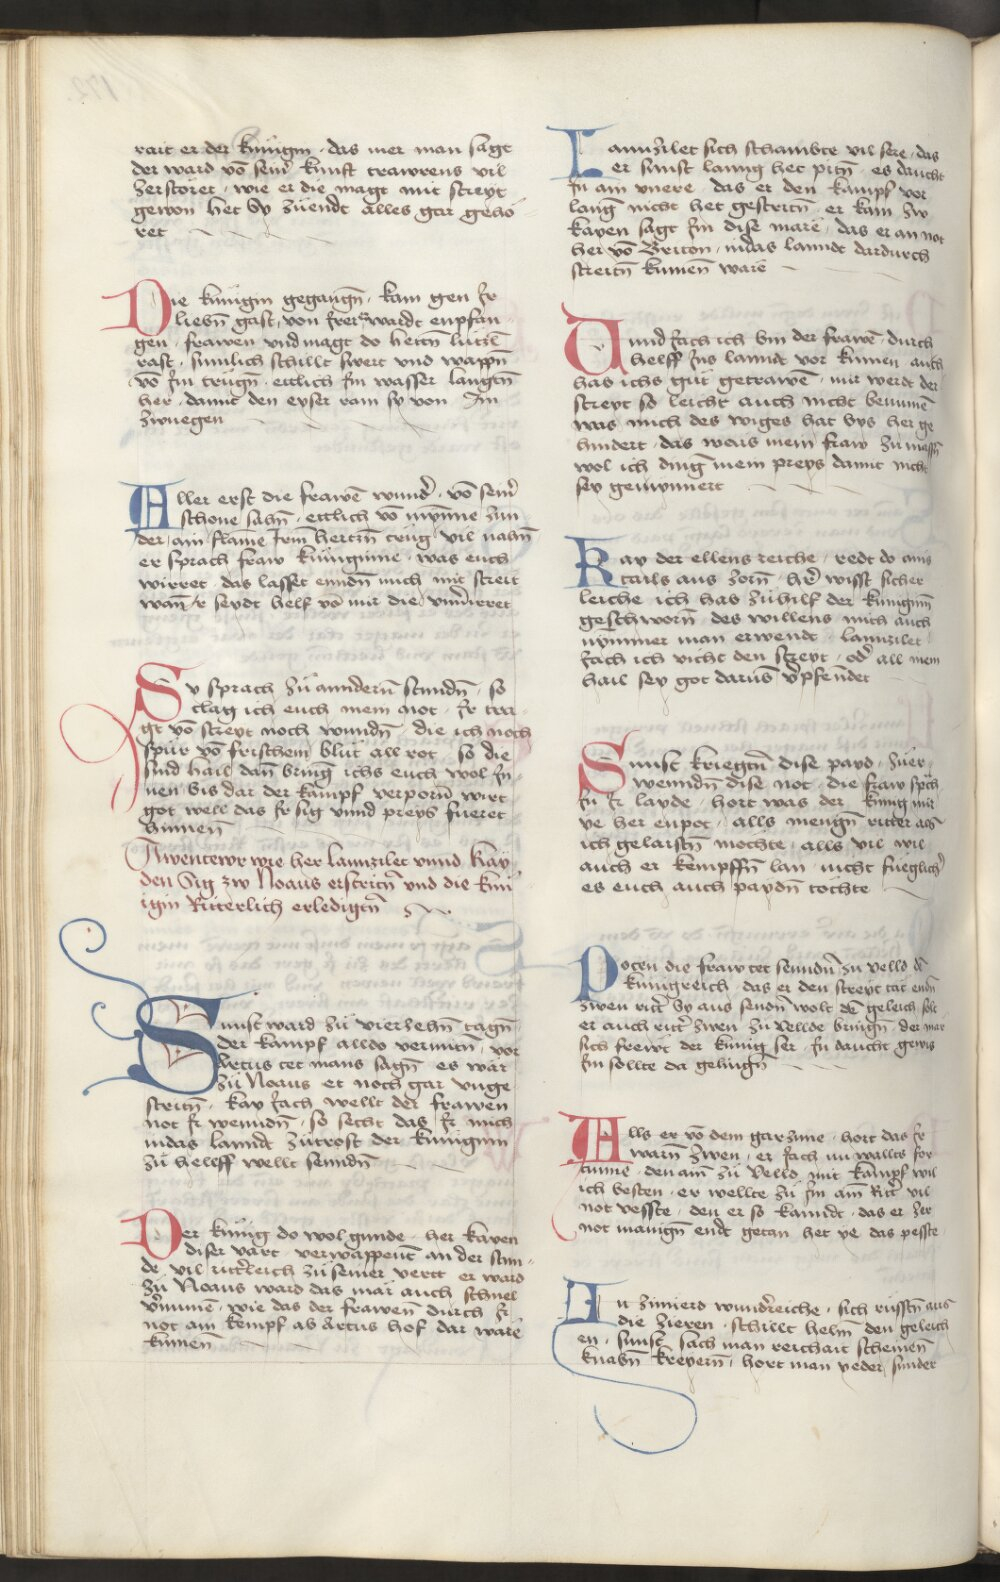 rait er der künigin · das mer man sagt
der ward võ sein͛ kunft trawrens vil
zerstöret · wie er die magt mit streyt
gewon het by zuendt alles gar gehö
ret
Die künigin gegangñ · kam gen Jr
liebñ gast, von Jrer wardt enpfan
gen · frawen vnd magt do hettñ lützl
rast · sümlich schillt swert vnd wappñ
võ Jm trügñ · ettlich Jm wasser langtñ
her · damit den eyser ram sy von Jm
zwuegen
Aller erst die frawē wund͛ · võ sein͛
schone sahñ · ettlich võ mynne zun
der · ain flame Jrem hertzñ trüg vil nahñ
er sprach fraw künginne · was euch
wirret · das lasset enndñ mich mit streit
wañ Jr seydt helf võ mir die vnuirret
Sy sprach zü anndern stundñ · so
clag ich euch mein not · Jr tra
gt võ streyt noch wundñ · die ich noch
spür võ frischem blüt all rot · so die
sind hail dañ bring ichs euch wol Jn
nen bis dar der kampf verporñ wirt
got well das Jr sig vnnd preys fueret
hinnen
Awentewr wie her lannzilet vnnd kay
den Sig zw Noaus erstritñ vnd die kün
igin Ritterlich erledigtñ
Sunst ward zü vierzehñ tagñ
der kampf alldo vermitñ · vor
Artus tet mans sagñ es wär
zü Noaus er noch gar vnge
stritñ · kay Jach wellt der frawen
not Jr wenndñ · so secht das Jr mich
indas lanndt zütrost der küniginn
zü helff wellt senndñ
Der künig do wol gunde · her kayen
diser vart · verwappent an der stun
de vil rittr̃leich zü seiner vertt er ward
zü Noaus ward das mär auch schnel
v͛nüme · wie das der frawen durch Jr
not ain kempf ab Artus hof dar wäre
kumen
Lannzilet sich schambte vil sere · das
er sunst lanng het pitñ · es daucht
Jn ain vnere · das er den kampf vor
lang nicht het gestritñ · er kam zw
kayen sagt Jm dise märe · das er an not
her võ Briton · indas lanndt dardurch
streitñ kumen wäre
Unnd Jach ich bin der frawē · durch
helff Jns lanndt vor kumen auch
has ichs güt getrawē · mir werdt der
streyt so leicht auch nicht benumē
was mich des wiges hat bys her ge
hindert · das wais mein fraw zu massñ
wol ich ding mein preys damit nicht
sey gemynnert
Kay der ellens reiche · redt do ains
tails aus zorñ · hr̃ wisst sicher
leiche ich has zühilf der kunginn
geschworñ · des willens mich auch
nymmer man erwendt · lannzilet
Jach ich vicht den streyt · od͛ all mein
hail sey got darüb v͛pfendet
Sunst kriegtñ dise payd · züer
wenndñ dise not · die fraw sp̃ch
Jn Jr layde · hort was der künig mir
ye her enpot · alls mengñ ritter als
ich gelaistñ möchte · alls vil wil
auch er kempffñ lan · nicht füeglich͛
es euch auch paydñ töchte
Poten die fraw tet senndñ zu vello d͛
künigreich · das er den streyt tät endñ
zwen ritt͛ by aus sendñ wolt dē geleich solt
er auch ritt͛ zwen zü Vellde bringñ · der mär
sich frewt der künig ser · Jn daucht gewis
Jm sollte da gelingñ
Alls er võ dem garzune · hort das Jr
warñ zwen · er Jach nu wallts for
tunne · den ain zü Vello mit kampf wil
ich besten · er wellte zü Jm ain Ritt͛ vil
not vesste · den er so kanndt · das er Jn
not manigñ endt getan het ye das pesste
An zimierd wundr̃reiche · sich rüsstñ aus
die zieren · schillt helm den geleich
en · sunst sach man reichait scheinen
knabñ kreyerñ · hort man yeder sunder